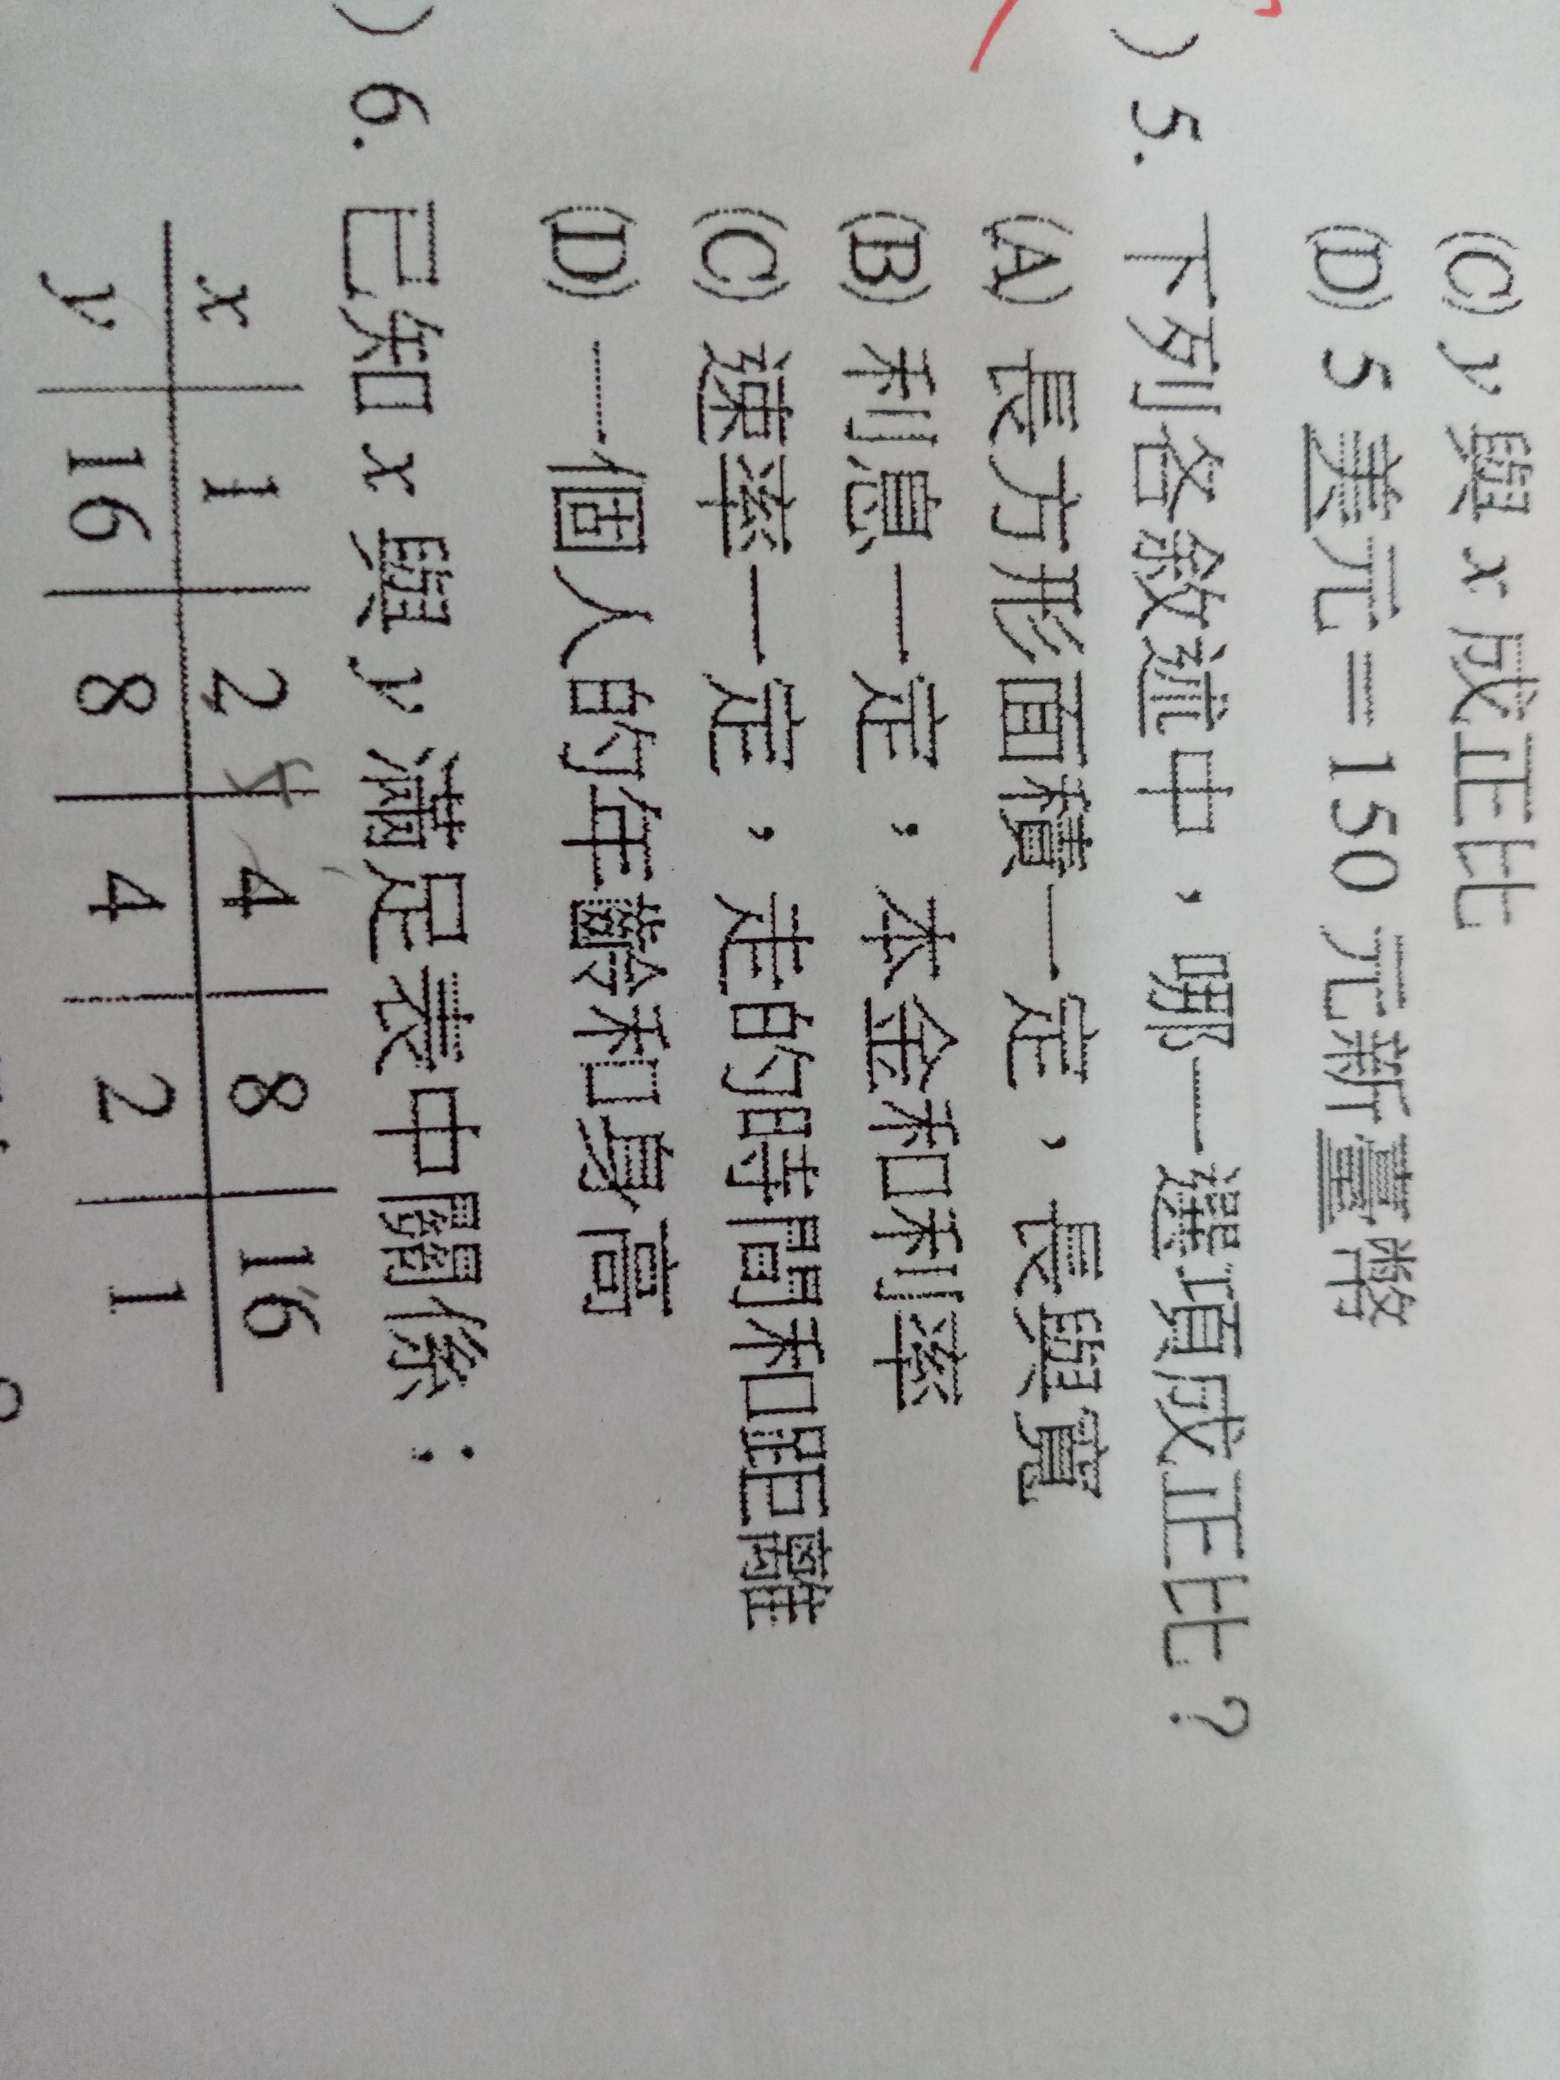 (C) y 與 x 成正比
(D) 5 美元＝150 元新臺幣
) 5. 下列各敘述中，哪一選項成正比？
(A) 長方形面積一定，長與寬
(B) 利息一定，本金和利率
(C) 速率一定，走的時間和距離
(D) 一個人的年齡和身高
) 6. 已知 x 與 y 滿足表中關係：
x 1 2 4 8 16
y 16 8 4 2 1